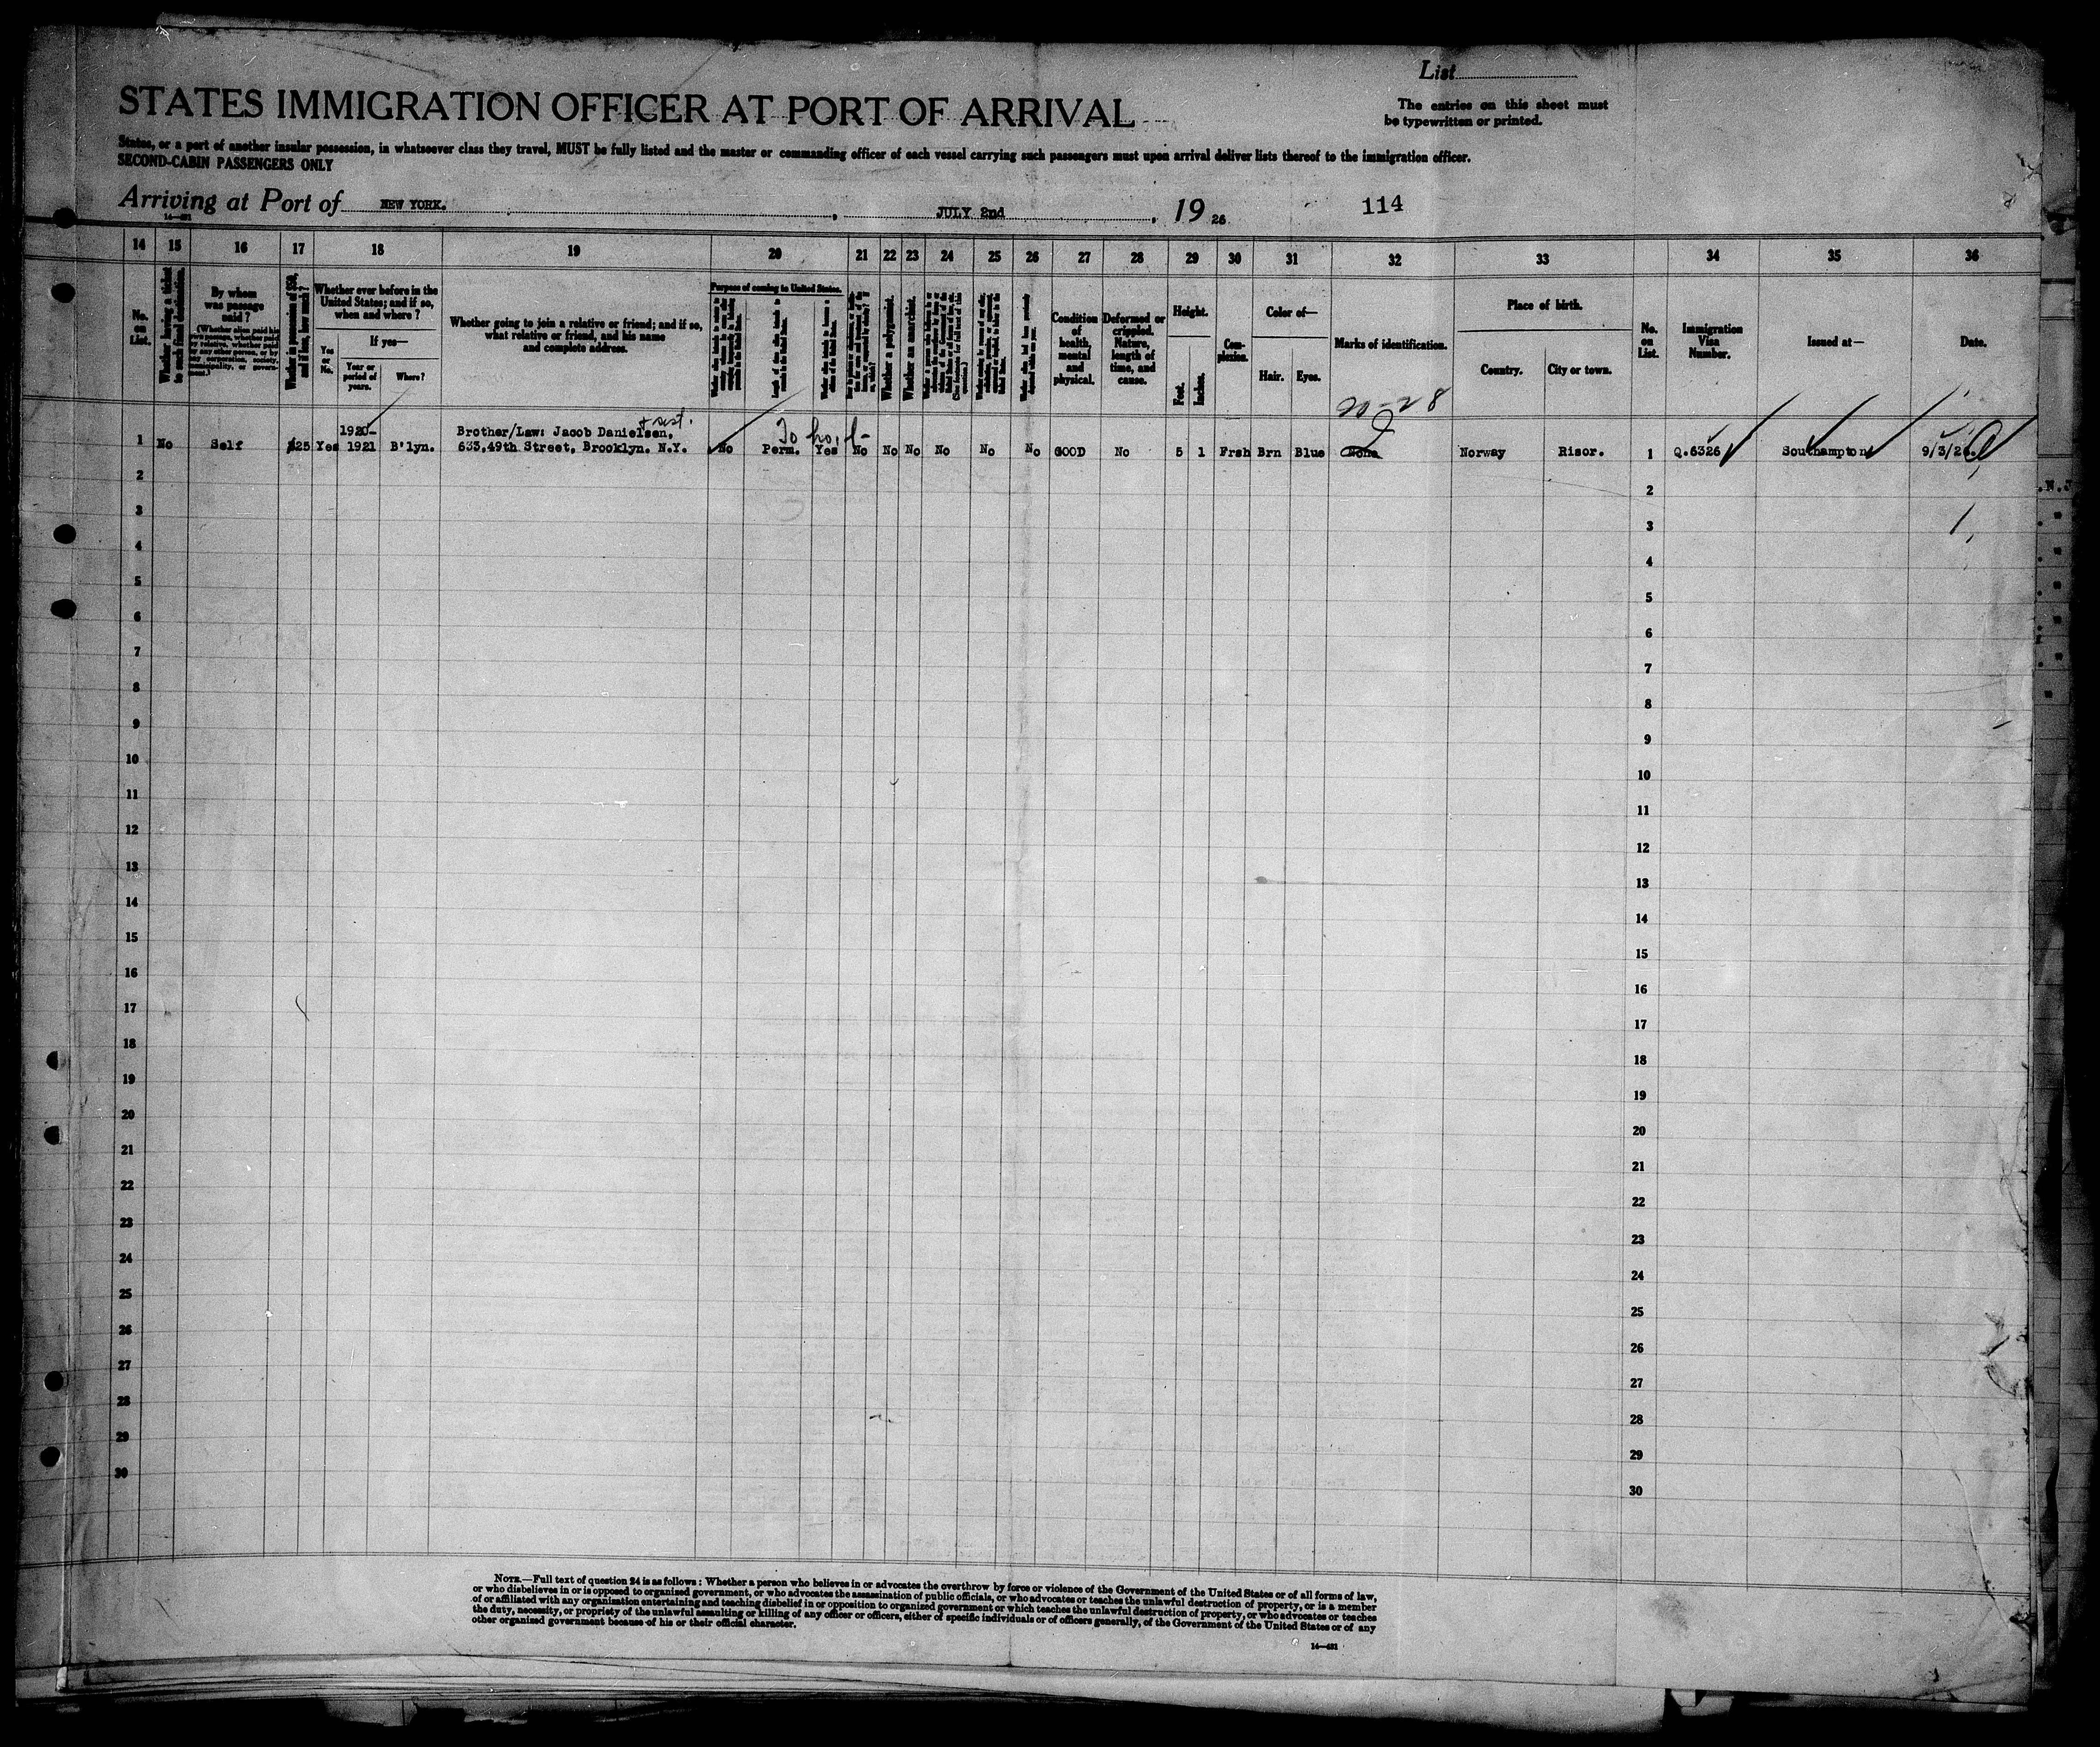 List
STATES IMMIGRATION OFFICER AT PORT OF ARRIVAL
The entries on this sheet must
be typewritten or printed.
States, or a port of another insular possession, in whatsoever class they travel, MUST be fully listed and the master or commanding officer of each vessel carrying such passengers must upon arrival deliver lists thereof to the immigration officer.
SECOND-CABIN PASSENGERS ONLY
Arriving at Port of NEW YORK. , JULY 2nd , 19 26 114
14—431
14 15 16 17 18 19 20 21 22 23 24 25 26 27 28 29 30 31 32 33 34 35 36
No.
on
List.
Whether having a ticket
to such final destination.
By whom
was passage
paid?
(Whether alien paid his
own passage, whether paid
by relative, whether paid
by any other person, or by
any corporation, society,
municipality, or govern-
ment.)
Whether in possession of $50,
and if less, how much?
Whether ever before in the
United States; and if so,
when and where?
Yes
or
No.
If yes—
Year or
period of
years.
Where?
Whether going to join a relative or friend; and if so,
what relative or friend, and his name
and complete address.
Purpose of coming to United States.
Whether a polygamist.
Whether an anarchist.
Condition
of
health,
mental
and
physical.
Deformed or
crippled.
Nature,
length of
time, and
cause.
Height.
Feet.
Inches.
Com-
plexion.
Color of—
Hair.
Eyes.
Marks of identification.
Place of birth.
Country.
City or town.
No.
on
List.
Immigration
Visa
Number.
Issued at—
Date.
20-28
1920-
Brother/Law: Jacob Danielsen,
+ sist.
1 No Self $25 Yes 1921 B'lyn. 633,49th Street, Brooklyn. N.Y. No Perm. Yes No No No No No No GOOD No 5 1 Frsh Brn Blue None Norway Risor. 1 Q.6326 Southampton 9/3/26.
2 2
3 3
4 4
5 5
6 6
7 7
8 8
9 9
10 10
11 11
12 12
13 13
14 14
15 15
16 16
17 17
18 18
19 19
20 20
21 21
22 22
23 23
24 24
25 25
26 26
27 27
28 28
29 29
30 30
NOTE.—Full text of question 24 is as follows: Whether a person who believes in or advocates the overthrow by force or violence of the Government of the United States or of all forms of law,
or who disbelieves in or is opposed to organized government, or who advocates the assassination of public officials, or who advocates or teaches the unlawful destruction of property, or is a member
of or affiliated with any organization entertaining and teaching disbelief in or opposition to organized government or which teaches the unlawful destruction of property, or who advocates or teaches
the duty, necessity, or propriety of the unlawful assaulting or killing of any officer or officers, either of specific individuals or of officers generally, of the Government of the United States or of any
other organized government because of his or their official character.
14—431